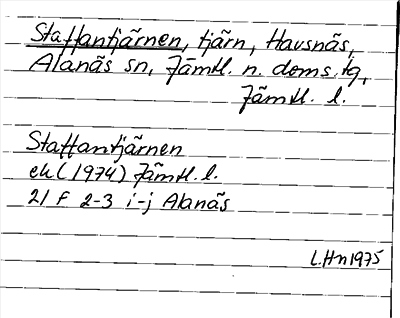 Staffantjärnen, tjärn, Havsnäs,
Alanäs sn, Jämtl. n. doms. tg,
Jämtl. l.
Staffantjärnen
ek (1974) Jämtl. l.
21 F 2-3 i-j Alanäs
L.Hn 1975